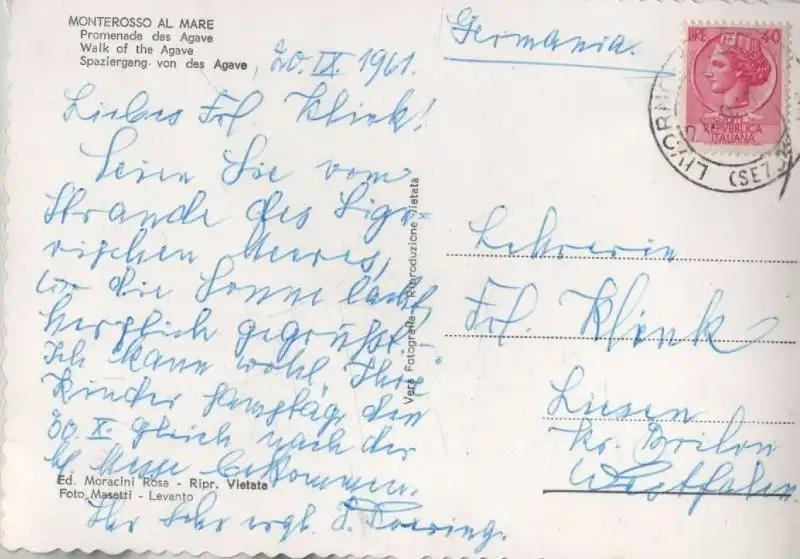 MONTEROSSO AL MARE
Promenade des Agave
Walk of the Agave
Spaziergang von des Agave
20. IX. 1961.
Liebes Frl. Klink!
Seien Sie vom
Strande des Ligu-
rischen Meeres,
wo die Sonne lacht,
herzlich gegrüßt.
Ich kann wohl, Ihre
Kinder Samstag den
30. X. gleich nach der
hl. Messe bekommen.
Ihr sehr ergb.
Ed. Moracini Rosa - Ripr. Vietata
Foto Masetti - Levanto
Vera Fotografia - Riproduzione Vietata
Germania.
LIRE 40
REPVBBLICA
ITALIANA
LIVORNO
Lehrerin
Frl. Klink
Liesen
Kr. Brilon
Westfalen